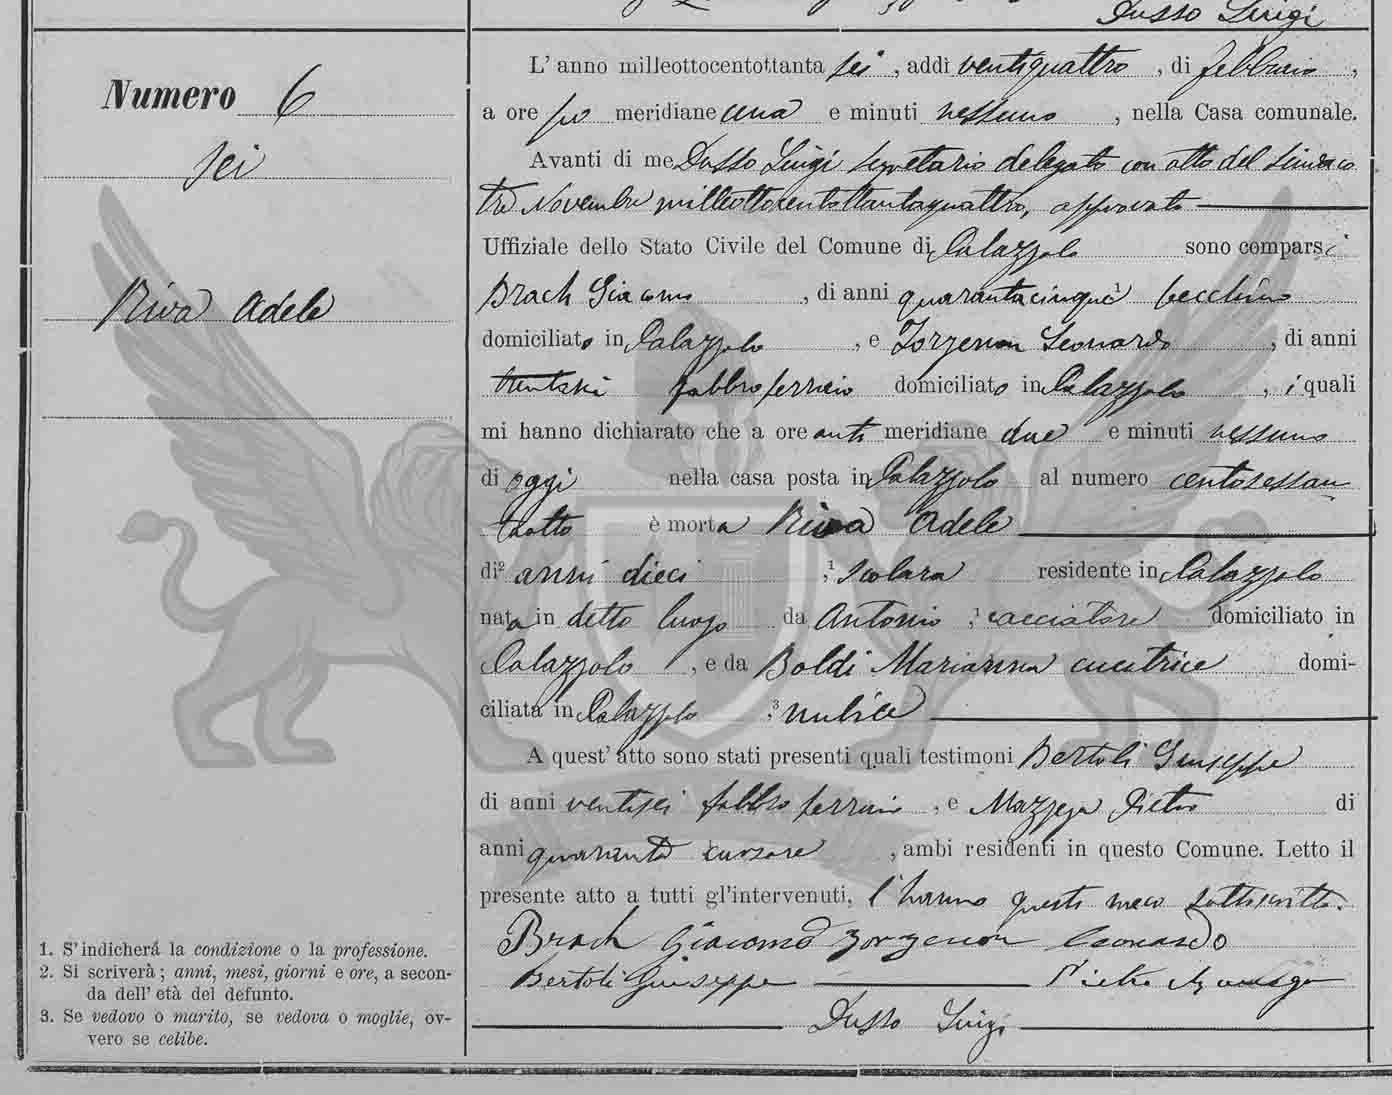 Dusso Luigi
Numero 6
sei
Riva Adele
L' anno milleottocentottanta sei , addì ventiquattro , di febbraio ,
a ore po meridiane una e minuti nessuno , nella Casa comunale.
Avanti di me Dusso Luigi segretario delegato con atto del sindaco
tre Novembre milleottocentottantaquattro, approvato
Uffiziale dello Stato Civile del Comune di Palazzolo sono comparsi
Brach Giacomo , di anni quarantacinque ¹ becchino
domiciliato in Palazzolo , e Zorzenon Leonardo , di anni
trentasei fabbro ferraio domiciliato in Palazzolo , i quali
mi hanno dichiarato che a ore anti meridiane due e minuti nessuno
di oggi nella casa posta in Palazzolo al numero centosessan
totto è morta Riva Adele
di² anni dieci ,¹ scolara residente in Palazzolo
nata in detto luogo da Antonio ,¹ cacciatore domiciliato in
Palazzolo , e da Boldi Marianna cucitrice domi-
ciliata in Palazzolo ,³ nubile
A quest' atto sono stati presenti quali testimoni Bertoli Giuseppe
di anni ventisei fabbro ferraio , e Mazzega Pietro di
anni quaranta cursore , ambi residenti in questo Comune. Letto il
presente atto a tutti gl'intervenuti, l'hanno questi meco sottoscritto.
Brach Giacomo Zorzenon Leonardo
Bertoli Giuseppe Pietro Mazzega
Dusso Luigi
1. S' indicherá la condizione o la professione.
2. Si scriverà ; anni, mesi, giorni e ore, a secon-
da dell' età del defunto.
3. Se vedovo o marito, se vedova o moglie, ov-
vero se celibe.